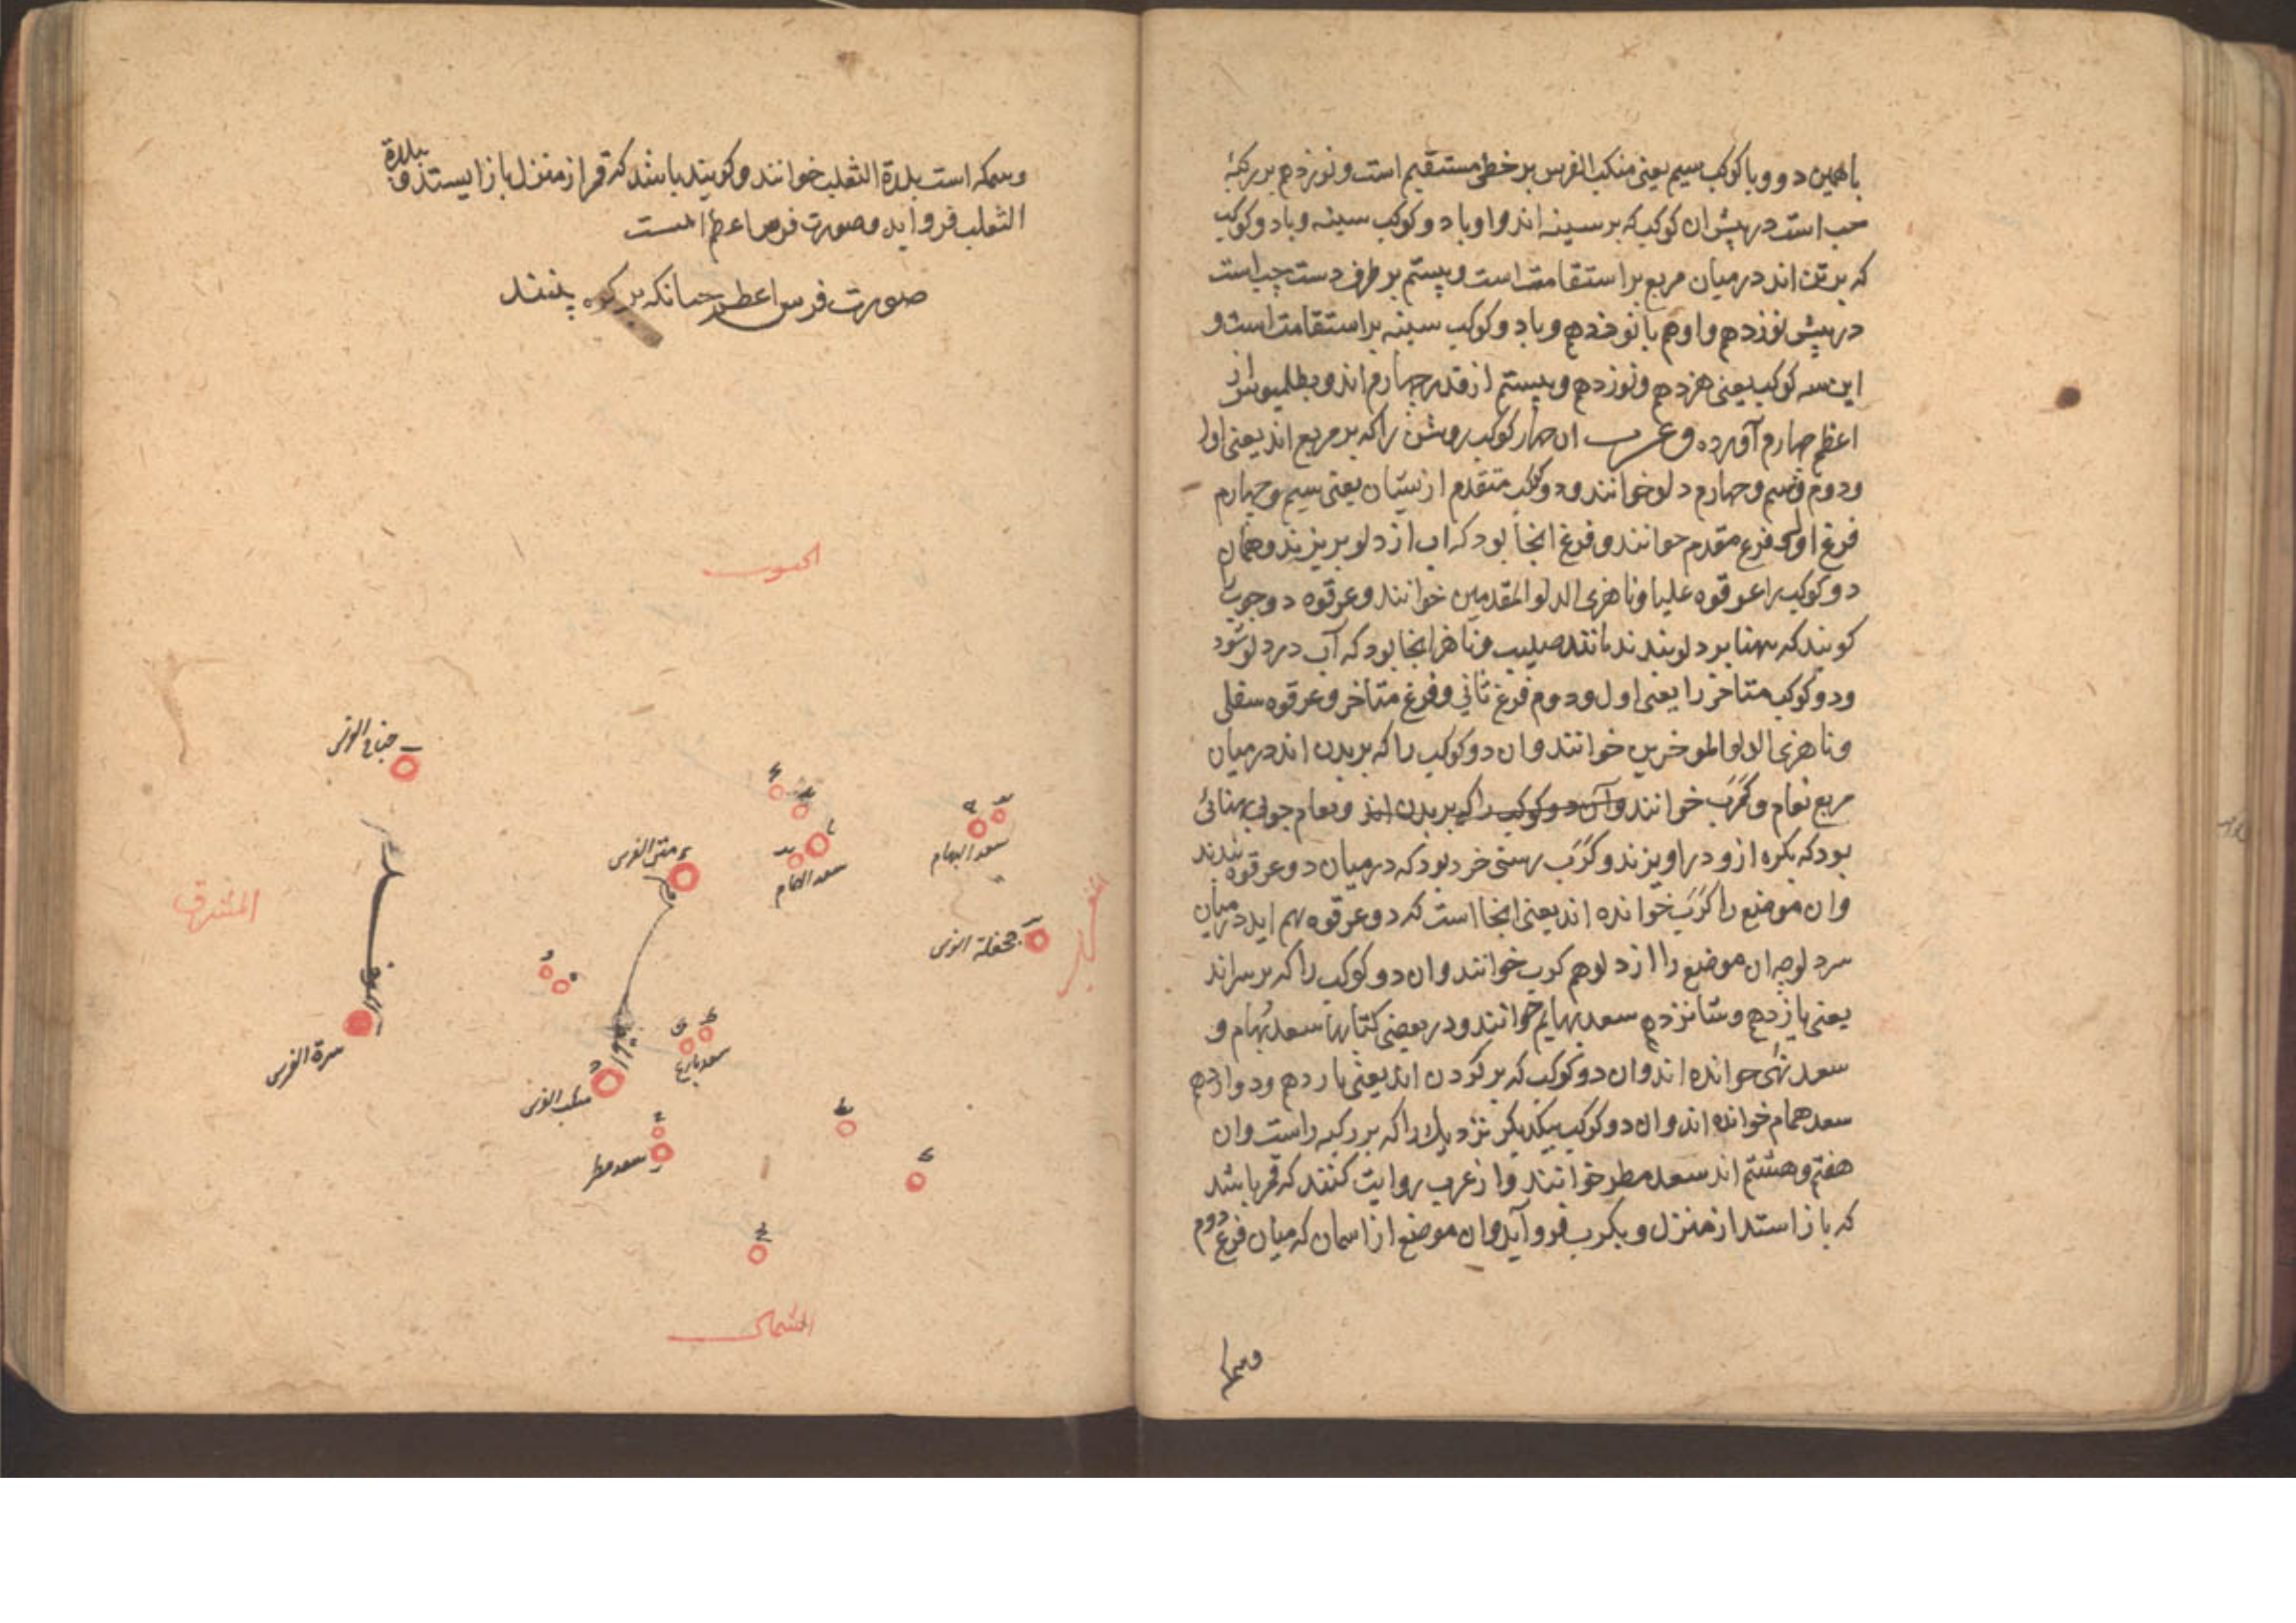 با همین دو و با کوکب سیم یعنی منکب الفرس بر خطی مستقیم است و نوزدهم بر رکبهٔ
چپ است در پیش ان کوکب که بر سینه اند و او با دو کوکب سینه و با دو کوکب
که بر تن اند در میان مربع بر استقامت است و بیستم بر طرف دست چپ است
در پیش نوزدهم و او هم با نوزدهم و با دو کوکب سینه بر استقامت است و
این سه کوکب یعنی هزدهم و نوزدهم و بیستم از قدر چهارم اند و بطلمیوس از
اعظم چهارم آورده و عرب ان چهار کوکب روشن را که بر مربع اند یعنی اول
و دوم و سیم و چهارم دلو خوانند و دو کوکب متقدم ازیشان یعنی سیم و چهارم
فرغ اول و فرغ مقدم خوانند و فرغ انجا بود که اب از دلو بریزند و همان
دو کوکب را عرقوه علیا و ناهزی الدلو المقدمین خوانند و عرقوه دو چوب
کویند که بهنا بر دلو بندند مانند صلیب و ناهز انجا بود که آب در دلو شود
و دو کوکب متاخر را یعنی اول و دوم فرغ ثانی و فرغ متاخر و عرقوه سفلی
و ناهزی الدلو الموخرین خوانند و ان دو کوکب را که بر بدن اند در میان
مربع نعام و کرب خوانند و آن دو کوکب را که بر بدن اند و نعام چوبی بهنائی
بود که بکره ازو در اویزند و کرب رسنی خرد بود که در میان دو عرقوه بندند
وان موضع را کرب خوانده اند یعنی انجا است که دو عرقوه بهم اید در میان
سر دلو چه ان موضع را از دلو هم کرب خوانند و ان دو کوکب را که بر سر اند
یعنی پانزدهم و شانزدهم سعد بهایم خوانند و در بعضی کتابها سعد بهام و
سعد نهی خوانده اند و ان دو کوکب که بر کردن اند یعنی یازدهم و دوازدهم
سعد همام خوانده اند و ان دو کوکب بیکدیکر نزدیک را که بر رکبه راست وان
هفتم و هشتم اند سعد مطر خوانند و از عرب روایت کنند که قمر باشد
که باز استد از منزل و بکرب فرو آید وان موضع از اسمان که میان فرغ دوم
وسمکه
وسمکه است بلدة الثعلب خوانند و کویند باشد که قمر از منزل باز ایستد و ببلدة
الثعلب فرو اید و صورت فرس اعظم اینست
صورت فرس اعظم چنانکه بر کره بینند
الجنوب
جناح الفرس
متن الفرس
سعد البهام
سعد الهمام
المشرق
المغرب
جحفلة الفرس
سرة الفرس
سعد بارع
منکب الفرس
سعد مطر
الشمال